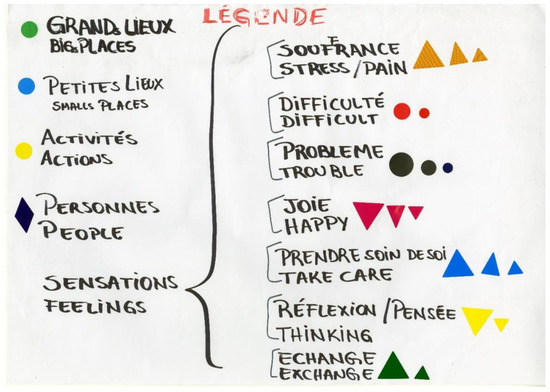 LÉGENDE
GRANDS LIEUX
BIGS PLACES
PETITES LIEUX
SMALLS PLACES
ACTIVITÉS
ACTIONS
PERSONNES
PEOPLE
SENSATIONS
FEELINGS
SOUFFRANCE
STRESS/PAIN
DIFFICULTÉ
DIFFICULT
PROBLEME
TROUBLE
JOIE
HAPPY
PRENDRE SOIN DE SOI
TAKE CARE
RÉFLEXION/PENSÉE
THINKING
ECHANGE
EXCHANGE